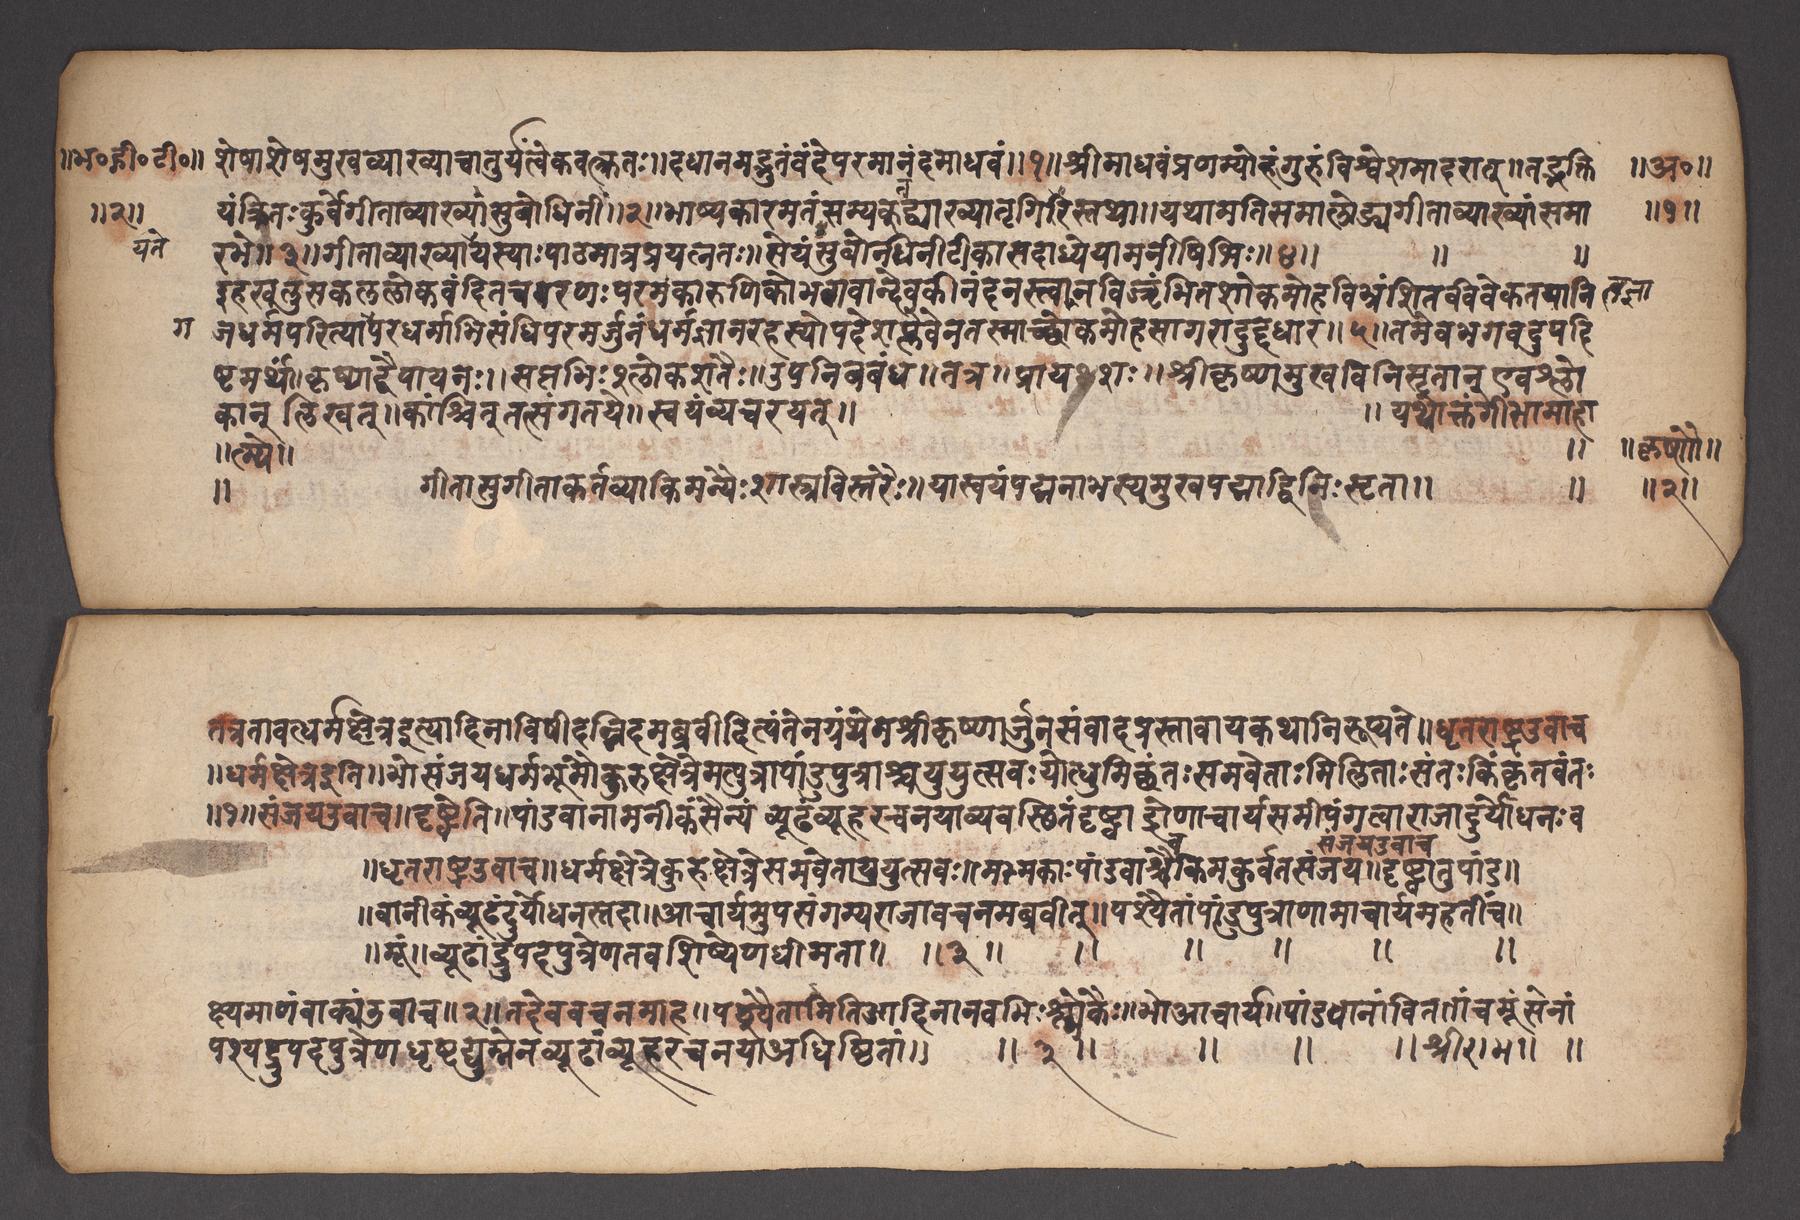 ॥भ॰गी॰टी॰॥ शेषाशेषमुखव्याख्याचातुर्यंत्वेकवत्क्रतः॥दधानमद्भुतंवंदेपरमानंदमाधवं॥१॥श्रीमाधवंप्रणम्योहंगुरुंविश्वेशमादरात्॥तद्भक्ति ॥अ॰॥
॥२॥ यंत्रितःकुर्वेगीताव्याख्यांसुबोधिनीं॥२॥भाष्यकारमतंसम्यक्तद्व्याख्यातृगिरिस्तथा॥यथामतिसमालोड्यगीताव्याख्यांसमा ॥१॥
यते
रभे॥३॥गीताव्याख्यायस्याःपाठमात्रप्रयत्नतः॥सेयंसुबोनधिनीटीकासदाध्येयामनीषिभिः॥४॥ ॥ ॥
इहखलुसकललोकवंदितचरणःपरमकारुणिकोभगवान्देवकीनंदनस्तत्वाज्ञानविजृंभितशोकमोहविभ्रंशितविवेकतयानि
ग जधर्मपरित्यापरधर्माभिसंधिपरमर्जुनंधर्मज्ञानरहस्योपदेशप्लवेनतस्माच्छोकमोहसागरादुद्दधार॥५॥तमेवभगवदुपदि
ष्टमर्थं॥कृष्णद्वैपायनः॥सप्तभिःश्लोकशतैः॥उपनिबबंध॥तत्र॥प्रायशः॥श्रीकृष्णमुखविनिसृतान्एवश्लो
कान् लिखत्॥कांश्चित्तत्संगतये॥स्वयंव्यचरयत्॥ ॥यथोक्तंगीतामाहा
॥त्म्ये॥ ॥ ॥कृष्णो॥
॥ गीतासुगीताकर्तव्याकिमन्यैःशास्त्रविस्तरैः॥यास्वयंपद्मनाभस्यमुखपद्माद्विनिःसृता॥ ॥ ॥२॥
तत्रतावत्धर्मक्षेत्रइत्यादिनाविषीदन्निदमब्रवीदित्यंतेनग्रंथेनश्रीकृष्णार्जुनसंवादप्रस्तावायकथानिरूप्यते॥धृतराष्ट्रउवाच
॥धर्मक्षेत्रइति॥भोसंजयधर्मभूमौकुरुक्षेत्रेमत्पुत्रापांडुपुत्राश्चयुयुत्सवःयोत्धुमिच्छंतःसमवेताःमिलिताःसंतःकिंकृतवंतः
॥१॥संजयउवाच॥दृष्ट्वेति॥पांडवानामनीकंसैन्यं व्यूढंव्यूहरचनयाव्यवस्थितंदृष्ट्वा द्रोणाचार्यसमीपंगत्वाराजादुर्योधनःव
संजयउवाच
॥धृतराष्ट्रउवाच॥धर्मक्षेत्रेकुरुक्षेत्रेसमवेतायुयुत्सवः॥मामकाःपांडवाश्चैवकिमकुर्वतसंजय॥दृष्ट्वातुपांड॥
॥वानीकंव्यूढंदुर्योधनस्तदा॥आचार्यमुपसंगम्यराजावचनमब्रवीत्॥पश्यैतांपांडुपुत्राणामाचार्यमहतींच॥
॥मूं॥व्यूढांद्रुपदपुत्रेणतवशिष्येणधीमता॥ ॥३॥ ॥ ॥ ॥ ॥ ॥
क्ष्यमाणंवाक्यंउवाच॥२॥तदेववचनमाह॥पश्यैतामितिआदिनानवभिःश्लोकैः॥भोआचार्य॥पांडवानांविततांचमूंसेनां
पश्यद्रुपदपुत्रेणधृष्टद्युम्नेनव्यूढांव्यूहरचनयाअधिष्ठितां॥ ॥३॥ ॥ ॥ ॥श्रीराम॥ ॥